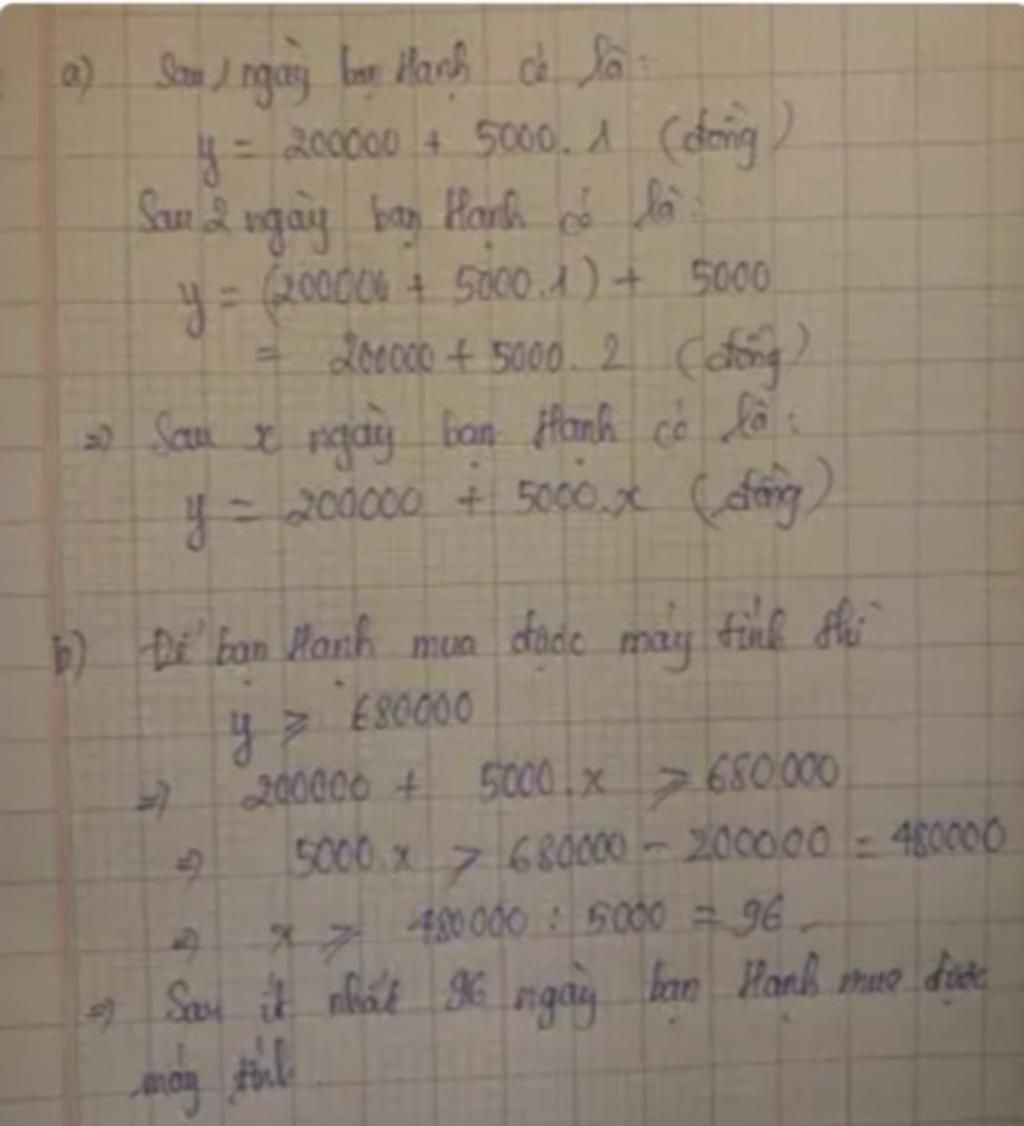 a) Sau 1 ngày bạn Hạnh có là:
y = 200000 + 5000. 1 (đồng)
Sau 2 ngày bạn Hạnh có là:
y = (200000 + 5000.1) + 5000
= 200000 + 5000. 2 (đồng)
=> Sau x ngày bạn Hạnh có là:
y = 200000 + 5000.x (đồng)
b) Để bạn Hạnh mua được máy tính thì
y ⩾ 680000
=> 200000 + 5000.x ⩾ 680000
=> 5000.x ⩾ 680000 - 200000 = 480000
=> x ⩾ 480000 : 5000 = 96
=> Sau ít nhất 96 ngày bạn Hạnh mua được
máy tính.